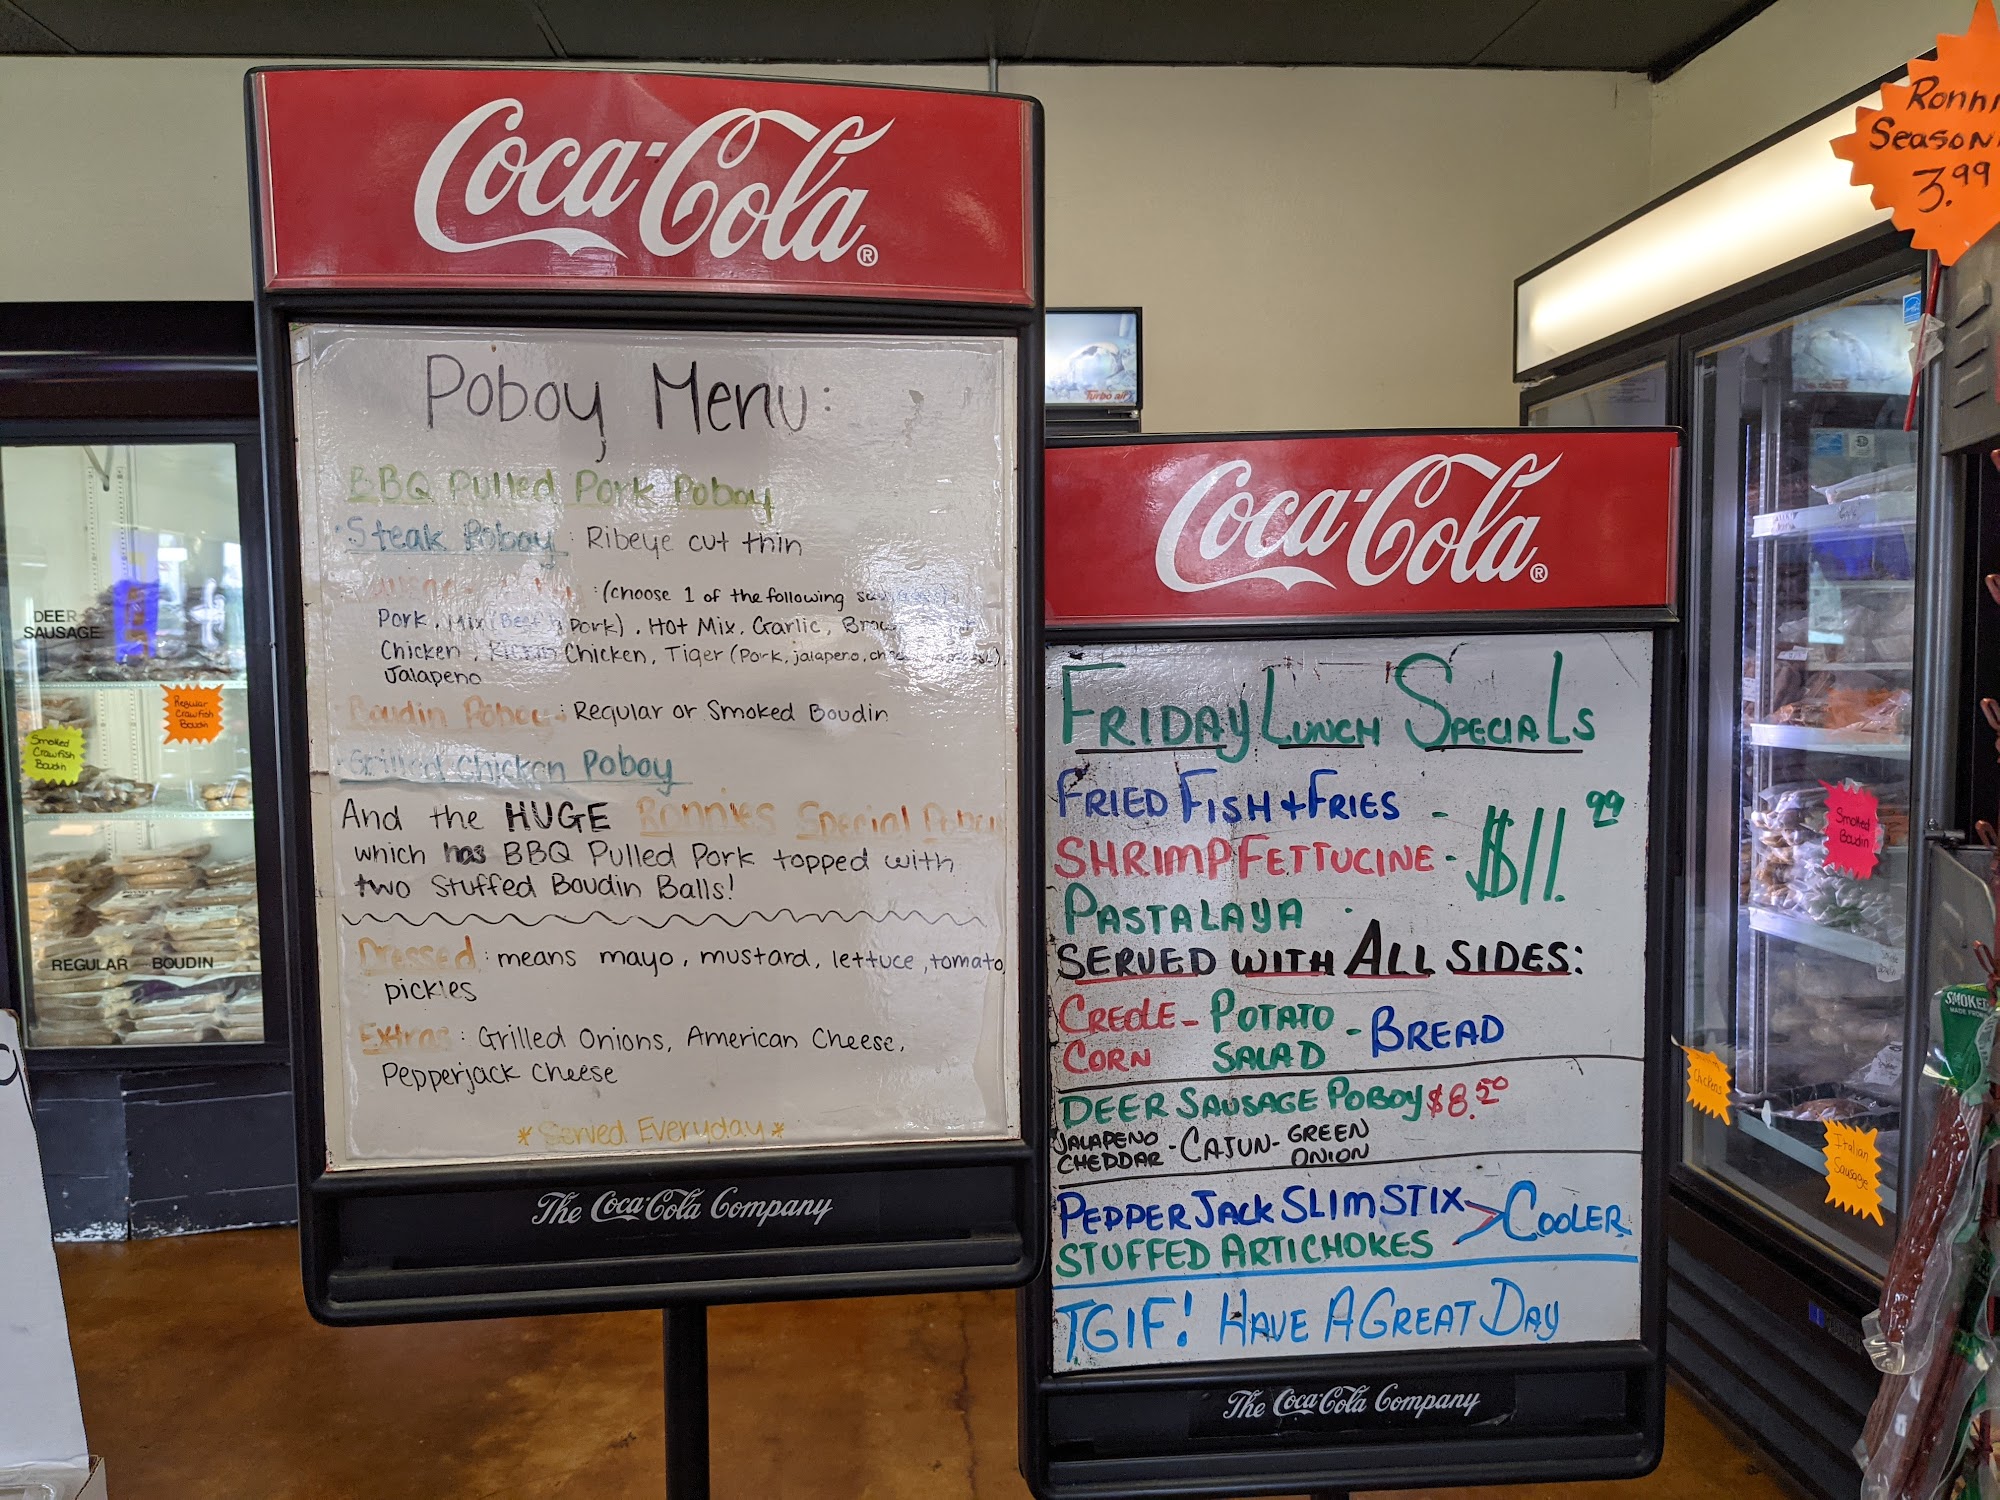 Coca-Cola®
Poboy Menu:
BBQ Pulled Pork Poboy
Steak Poboy : Ribeye cut thin
: (choose 1 of the following
Pork, Mix (Beef & Pork), Hot Mix, Garlic,
Chicken, Chicken, Tiger (Pork, jalapeno,
Jalapeno
Boudin Poboy : Regular or Smoked Boudin
Grilled Chicken Poboy
And the HUGE Ronnies Special Poboy
which has BBQ Pulled Pork topped with
two Stuffed Boudin Balls!
Dressed : means mayo, mustard, lettuce, tomato,
pickles
Extras : Grilled Onions, American Cheese,
Pepperjack Cheese
* Served Everyday *
The Coca-Cola Company
Coca-Cola®
FRIDAY LUNCH SPECIALS
FRIED FISH + FRIES -
SHRIMP FETTUCINE - $11.99
PASTALAYA -
SERVED WITH ALL SIDES:
CREOLE CORN - POTATO SALAD - BREAD
DEER SAUSAGE POBOY $8.50
JALAPENO CHEDDAR - CAJUN - GREEN ONION
PEPPER JACK SLIM STIX > COOLER
STUFFED ARTICHOKES
TGIF! HAVE A GREAT DAY
The Coca-Cola Company
DEER
SAUSAGE
Regular
Crawfish
Boudin
Smoked
Crawfish
Boudin
REGULAR BOUDIN
Turbo air
3.99
Smoked
Boudin
Chickens
Italian
Sausage